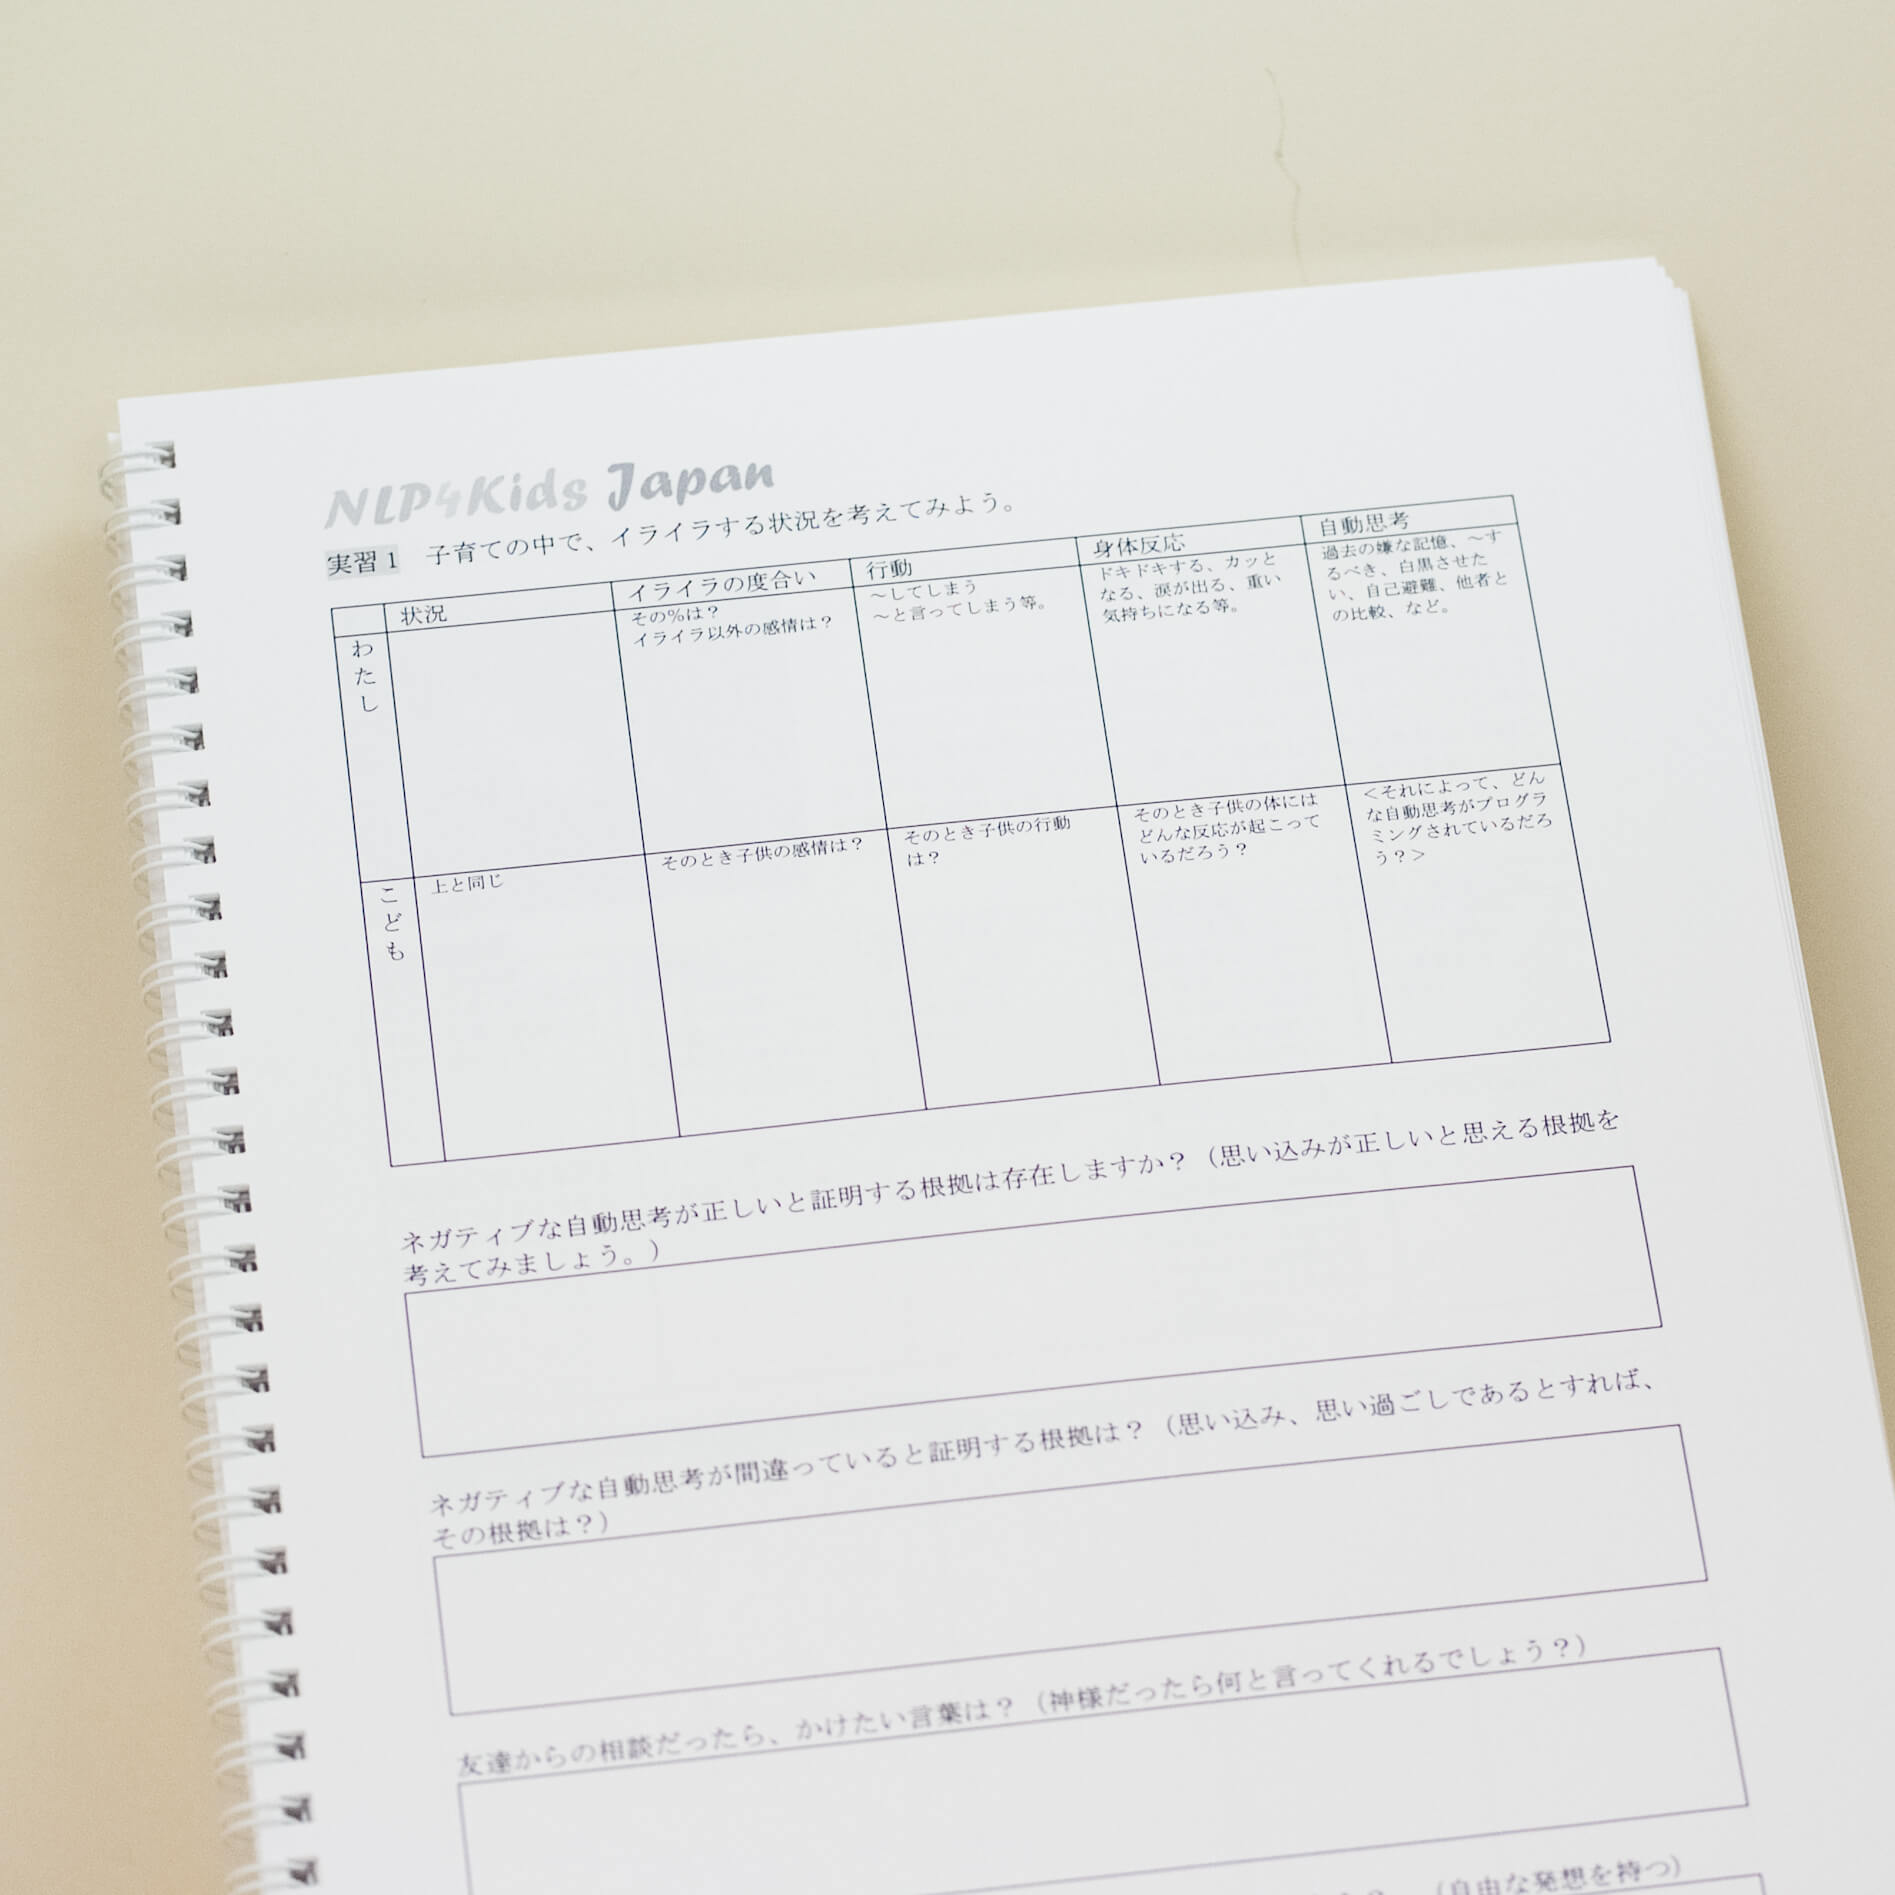 NLP4Kids Japan
実習1　子育ての中で、イライラする状況を考えてみよう。
状況
イライラの度合い
行動
身体反応
自動思考
わたし
その%は？
イライラ以外の感情は？
～してしまう
～と言ってしまう等。
ドキドキする、カッと
なる、涙が出る、重い
気持ちになる等。
過去の嫌な記憶、～す
るべき、白黒させた
い、自己避難、他者と
の比較、など。
こども
上と同じ
そのとき子供の感情は？
そのとき子供の行動
は？
そのとき子供の体には
どんな反応が起こって
いるだろう？
＜それによって、どん
な自動思考がプログラ
ミングされているだろ
う？＞
ネガティブな自動思考が正しいと証明する根拠は存在しますか？（思い込みが正しいと思える根拠を
考えてみましょう。）
ネガティブな自動思考が間違っていると証明する根拠は？（思い込み、思い過ごしであるとすれば、
その根拠は？）
友達からの相談だったら、かけたい言葉は？（神様だったら何と言ってくれるでしょう？）
（自由な発想を持つ）